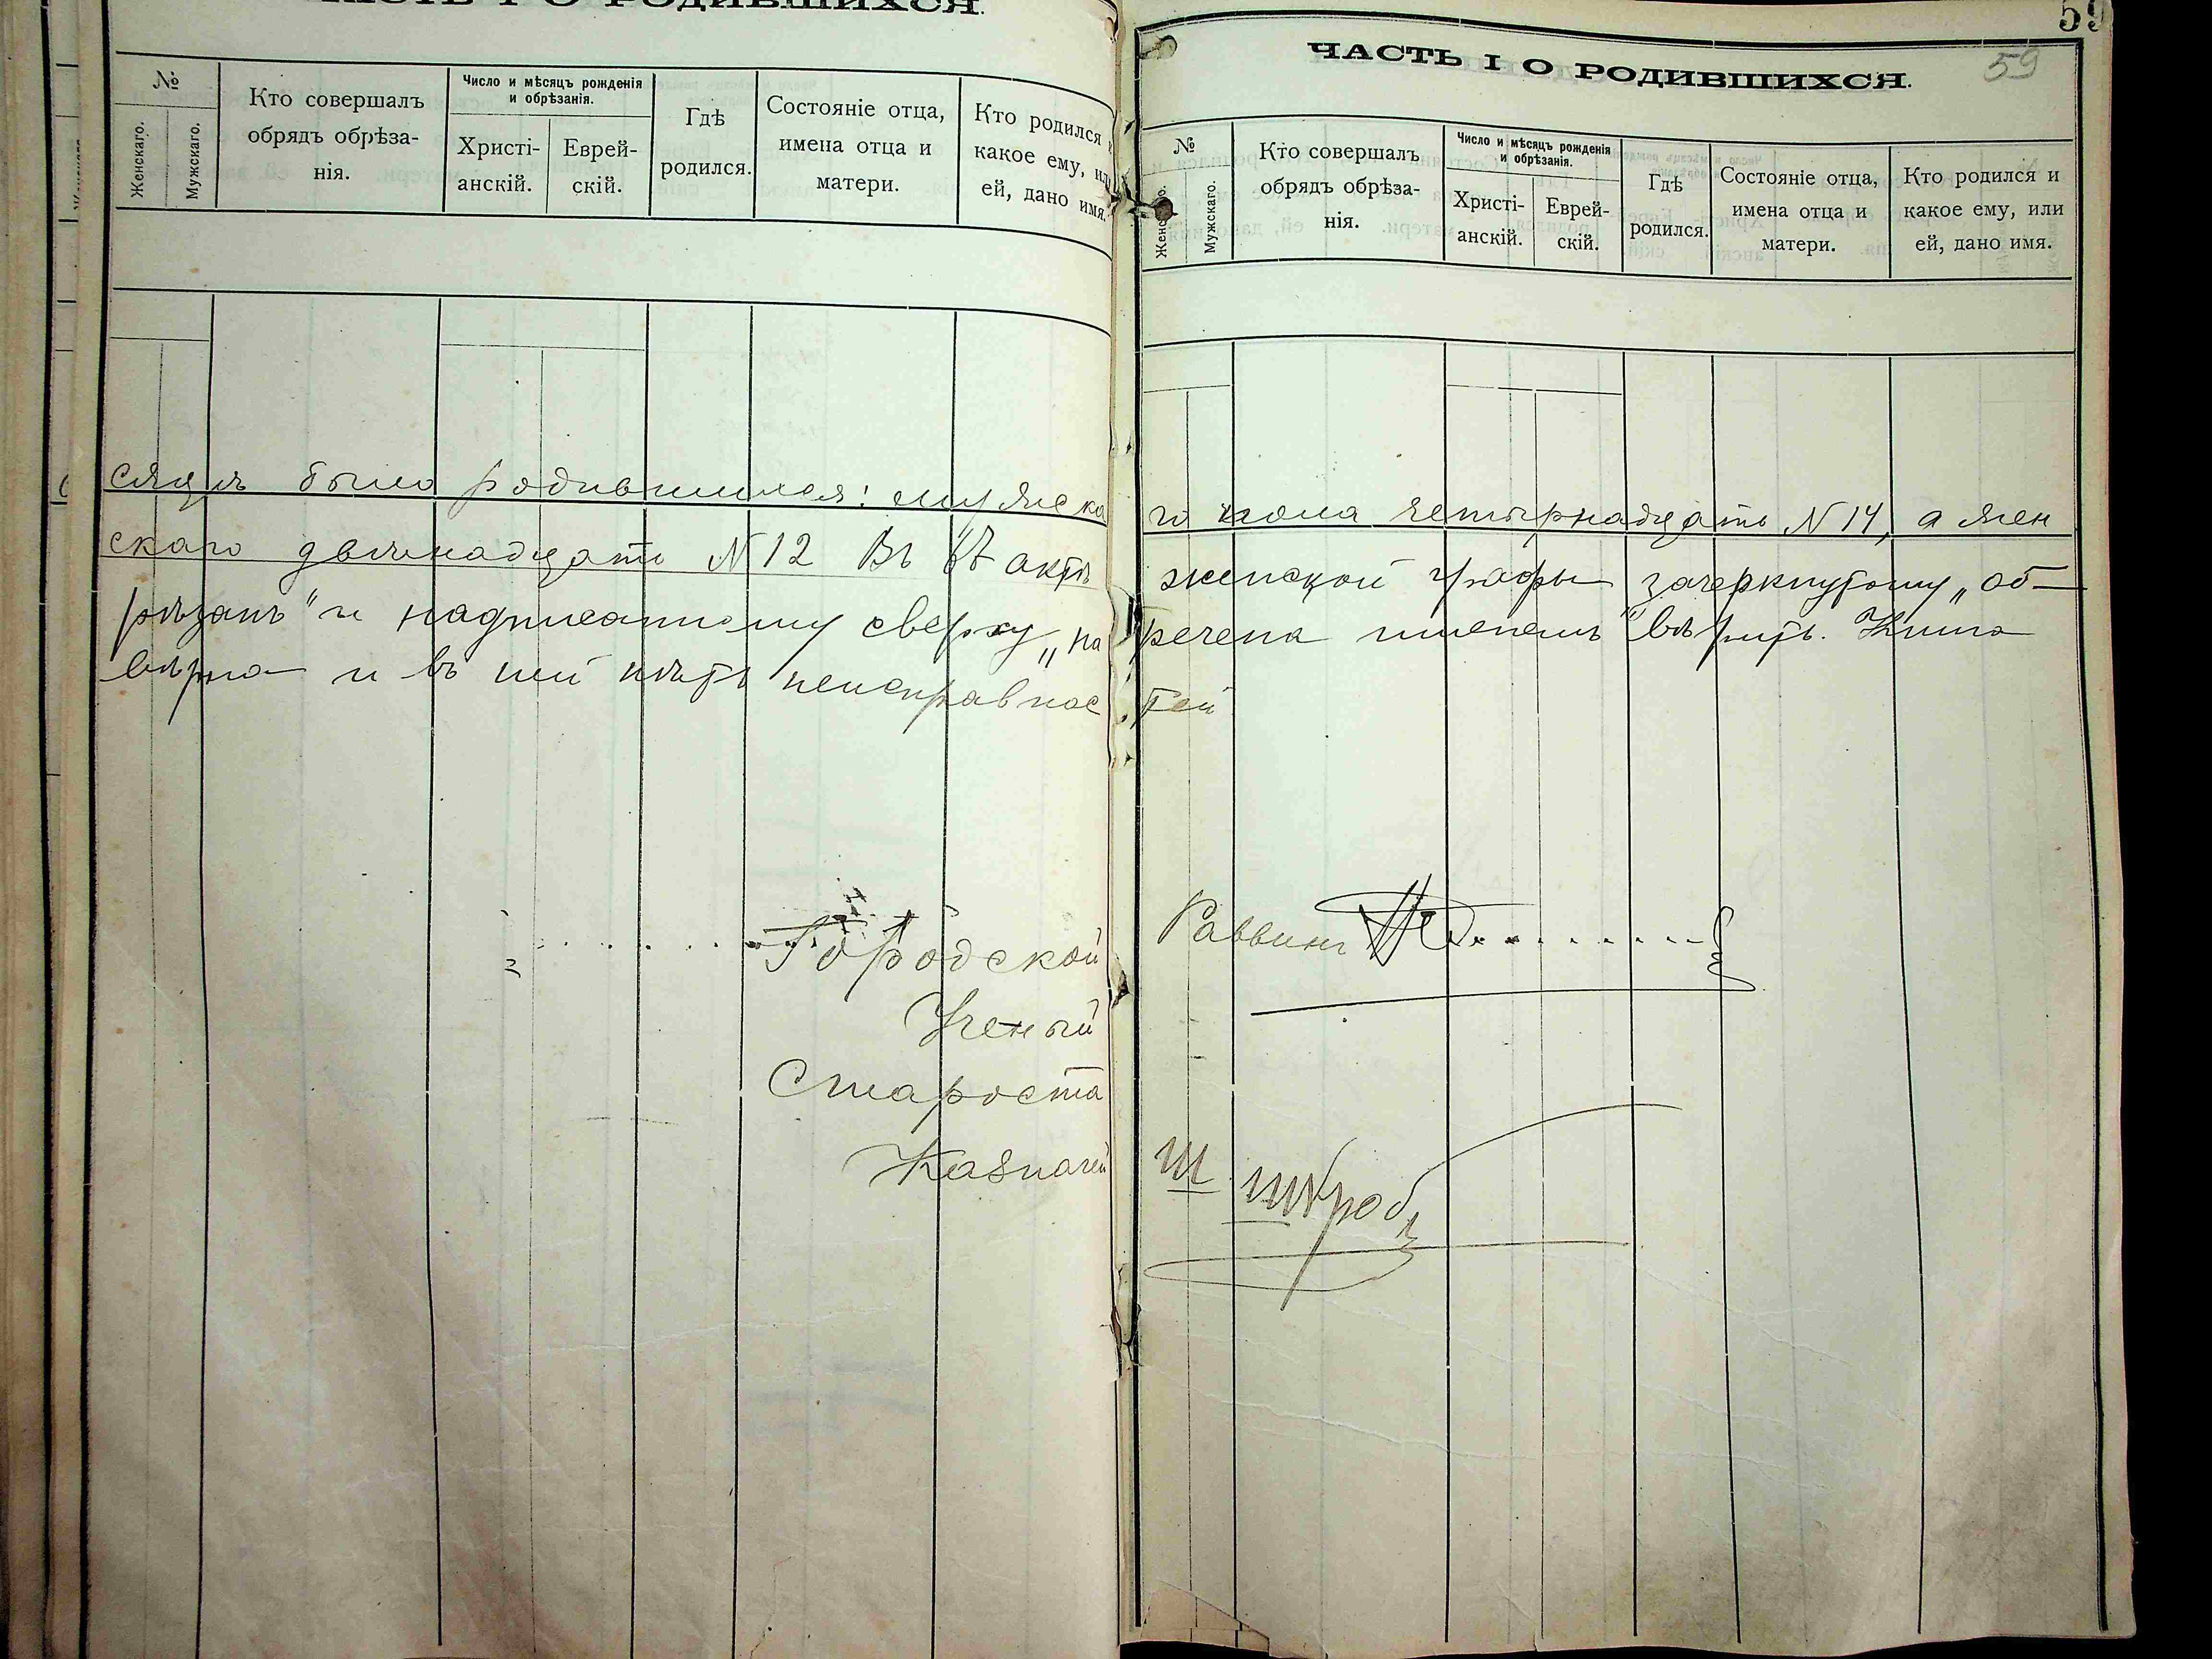 ЧАСТЬ I О РОДИВШИХСЯ.
№
Женскаго.
Мужскаго.
Кто совершалъ
обрядъ обрѣза-
нія.
Число и мѣсяцъ рожденія
и обрѣзанія.
Христі-
анскій.
Еврей-
скій.
Гдѣ
родился.
Состояніе отца,
имена отца и
матери.
Кто родился и
какое ему, или
ей, дано имя.
59
59
ЧАСТЬ I О РОДИВШИХСЯ.
№
Мужскаго.
Кто совершалъ
обрядъ обрѣза-
нія.
Число и мѣсяцъ рожденія
и обрѣзанія.
Христі-
анскій.
Еврей-
скій.
Гдѣ
родился.
Состояніе отца,
имена отца и
матери.
Кто родился и
какое ему, или
ей, дано имя.
сяцѣ было родившихся: мужска го пола четырнадцать N 14, а жен
скаго двѣнадцать N 12 Въ актѣ женской графы зачеркнутому „об-
рѣзанъ" и надписанному сверху „на речена именемъ" вѣрить. Книга
вѣрна и въ ней нѣтъ неисправнос тей
Городской Раввинъ
Ученый
Староста
Казначей Ш Шкроб